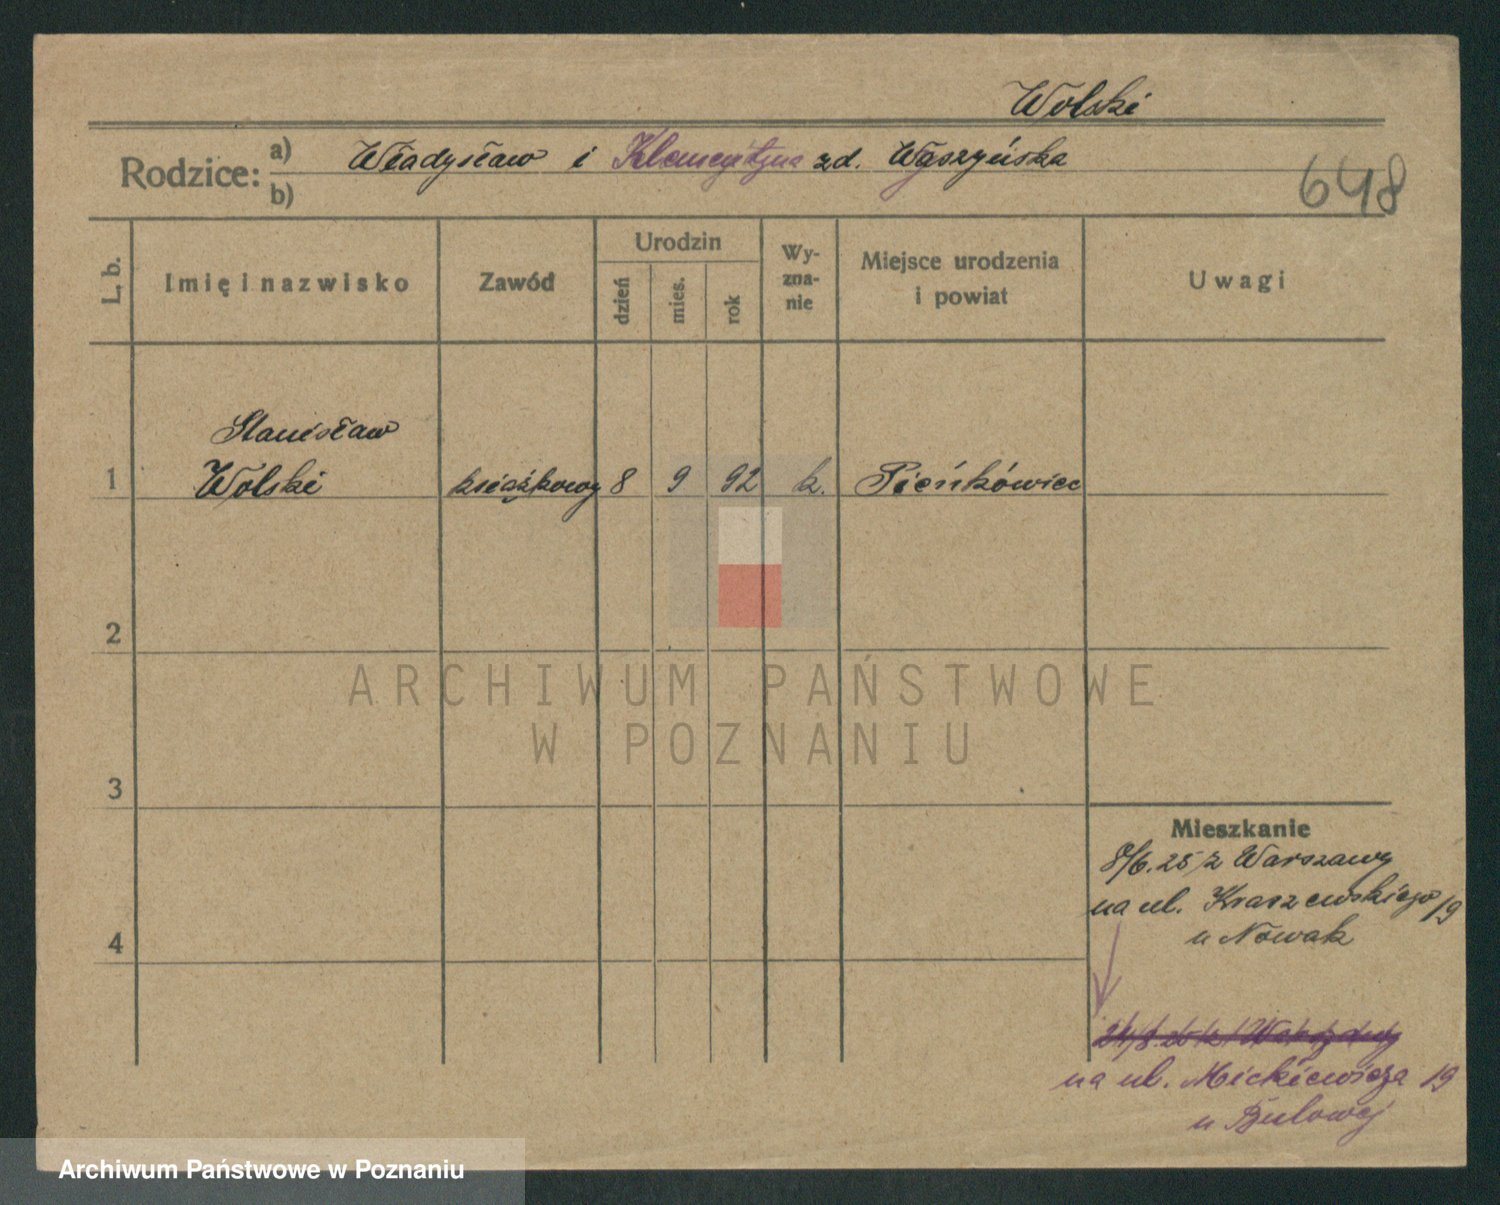 Wolski
Rodzice: a) Władysław i Klementyna zd. Wąszyńska
b)
648
L. b.
Imię i nazwisko
Zawód
Urodzin
dzień
mies.
rok
Wy-
zna-
nie
Miejsce urodzenia
i powiat
Uwagi
Stanisław
1 Wolski książkowy 8 9 92 k. Pieńkówiec
2
3
4
ARCHIWUM PAŃSTWOWE
W POZNANIU
Mieszkanie
8/6. 25 z Warszawy
na ul. Kraszewskiego 19
u Nowak
na ul. Mickiewicza 19
u Bulowej
Archiwum Państwowe w Poznaniu